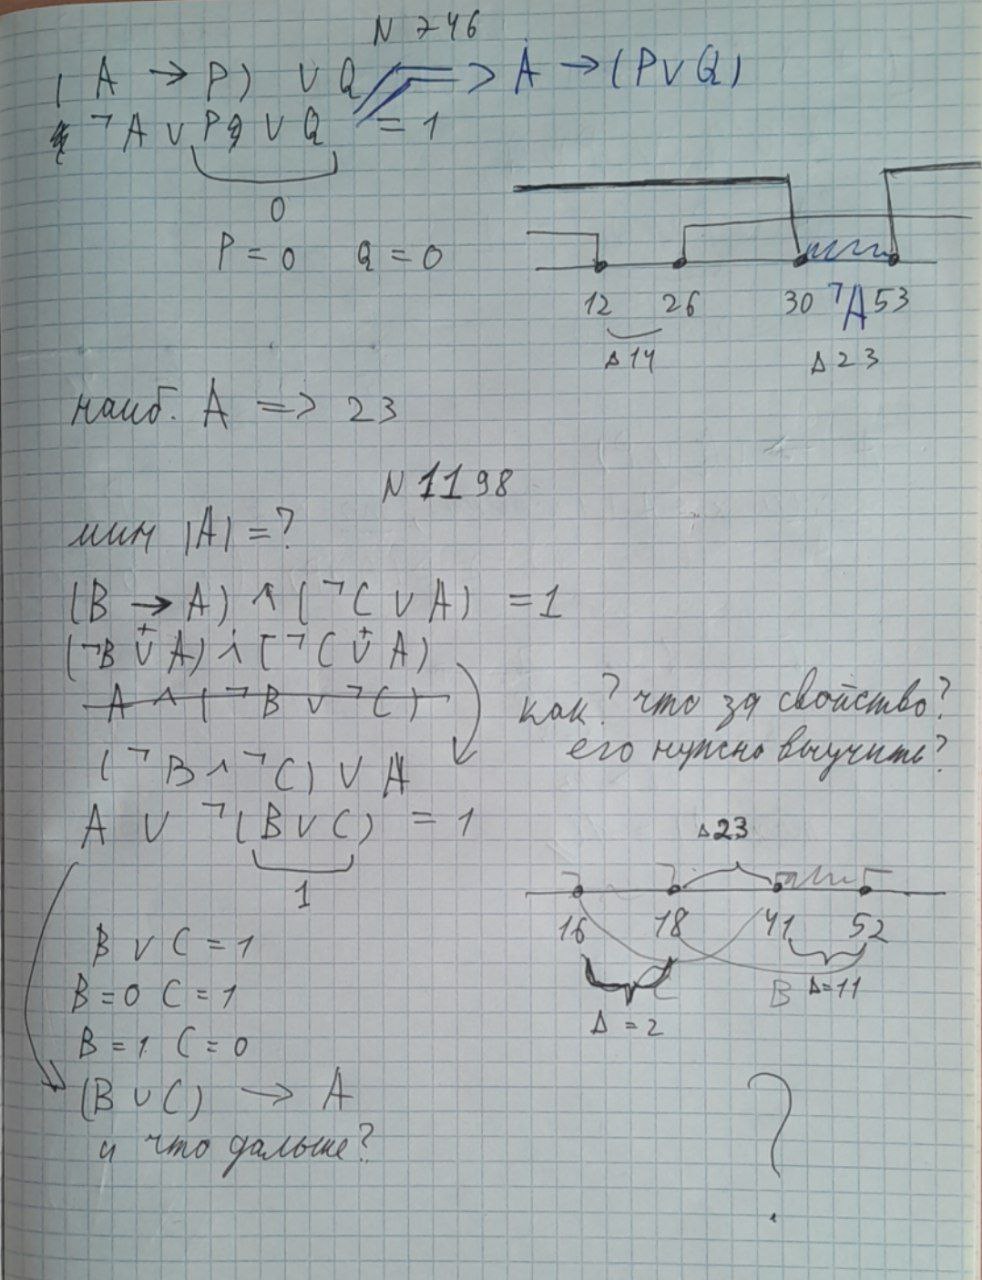 N 746
(A → P) ∨ Q => A → (P∨Q)
¬A ∨ P ∨ Q = 1
0
P = 0 Q = 0
12 26 30 ¬A 53
Δ14 Δ23
наиб. A => 23
N 1198
мин |A| = ?
(B → A) ∧ (¬C ∨ A) = 1
(¬B ∨ A) ∧ (¬C ∨ A)
A ∧ (¬B ∨ ¬C)
как? что за свойство?
его нужно выучить?
(¬B ∧ ¬C) ∨ A
A ∨ ¬(B∨C) = 1
1
Δ23
16 18 41 52
C B Δ=11
Δ = 2
B ∨ C = 1
B = 0 C = 1
B = 1 C = 0
(B ∨ C) → A
и что дальше?
?